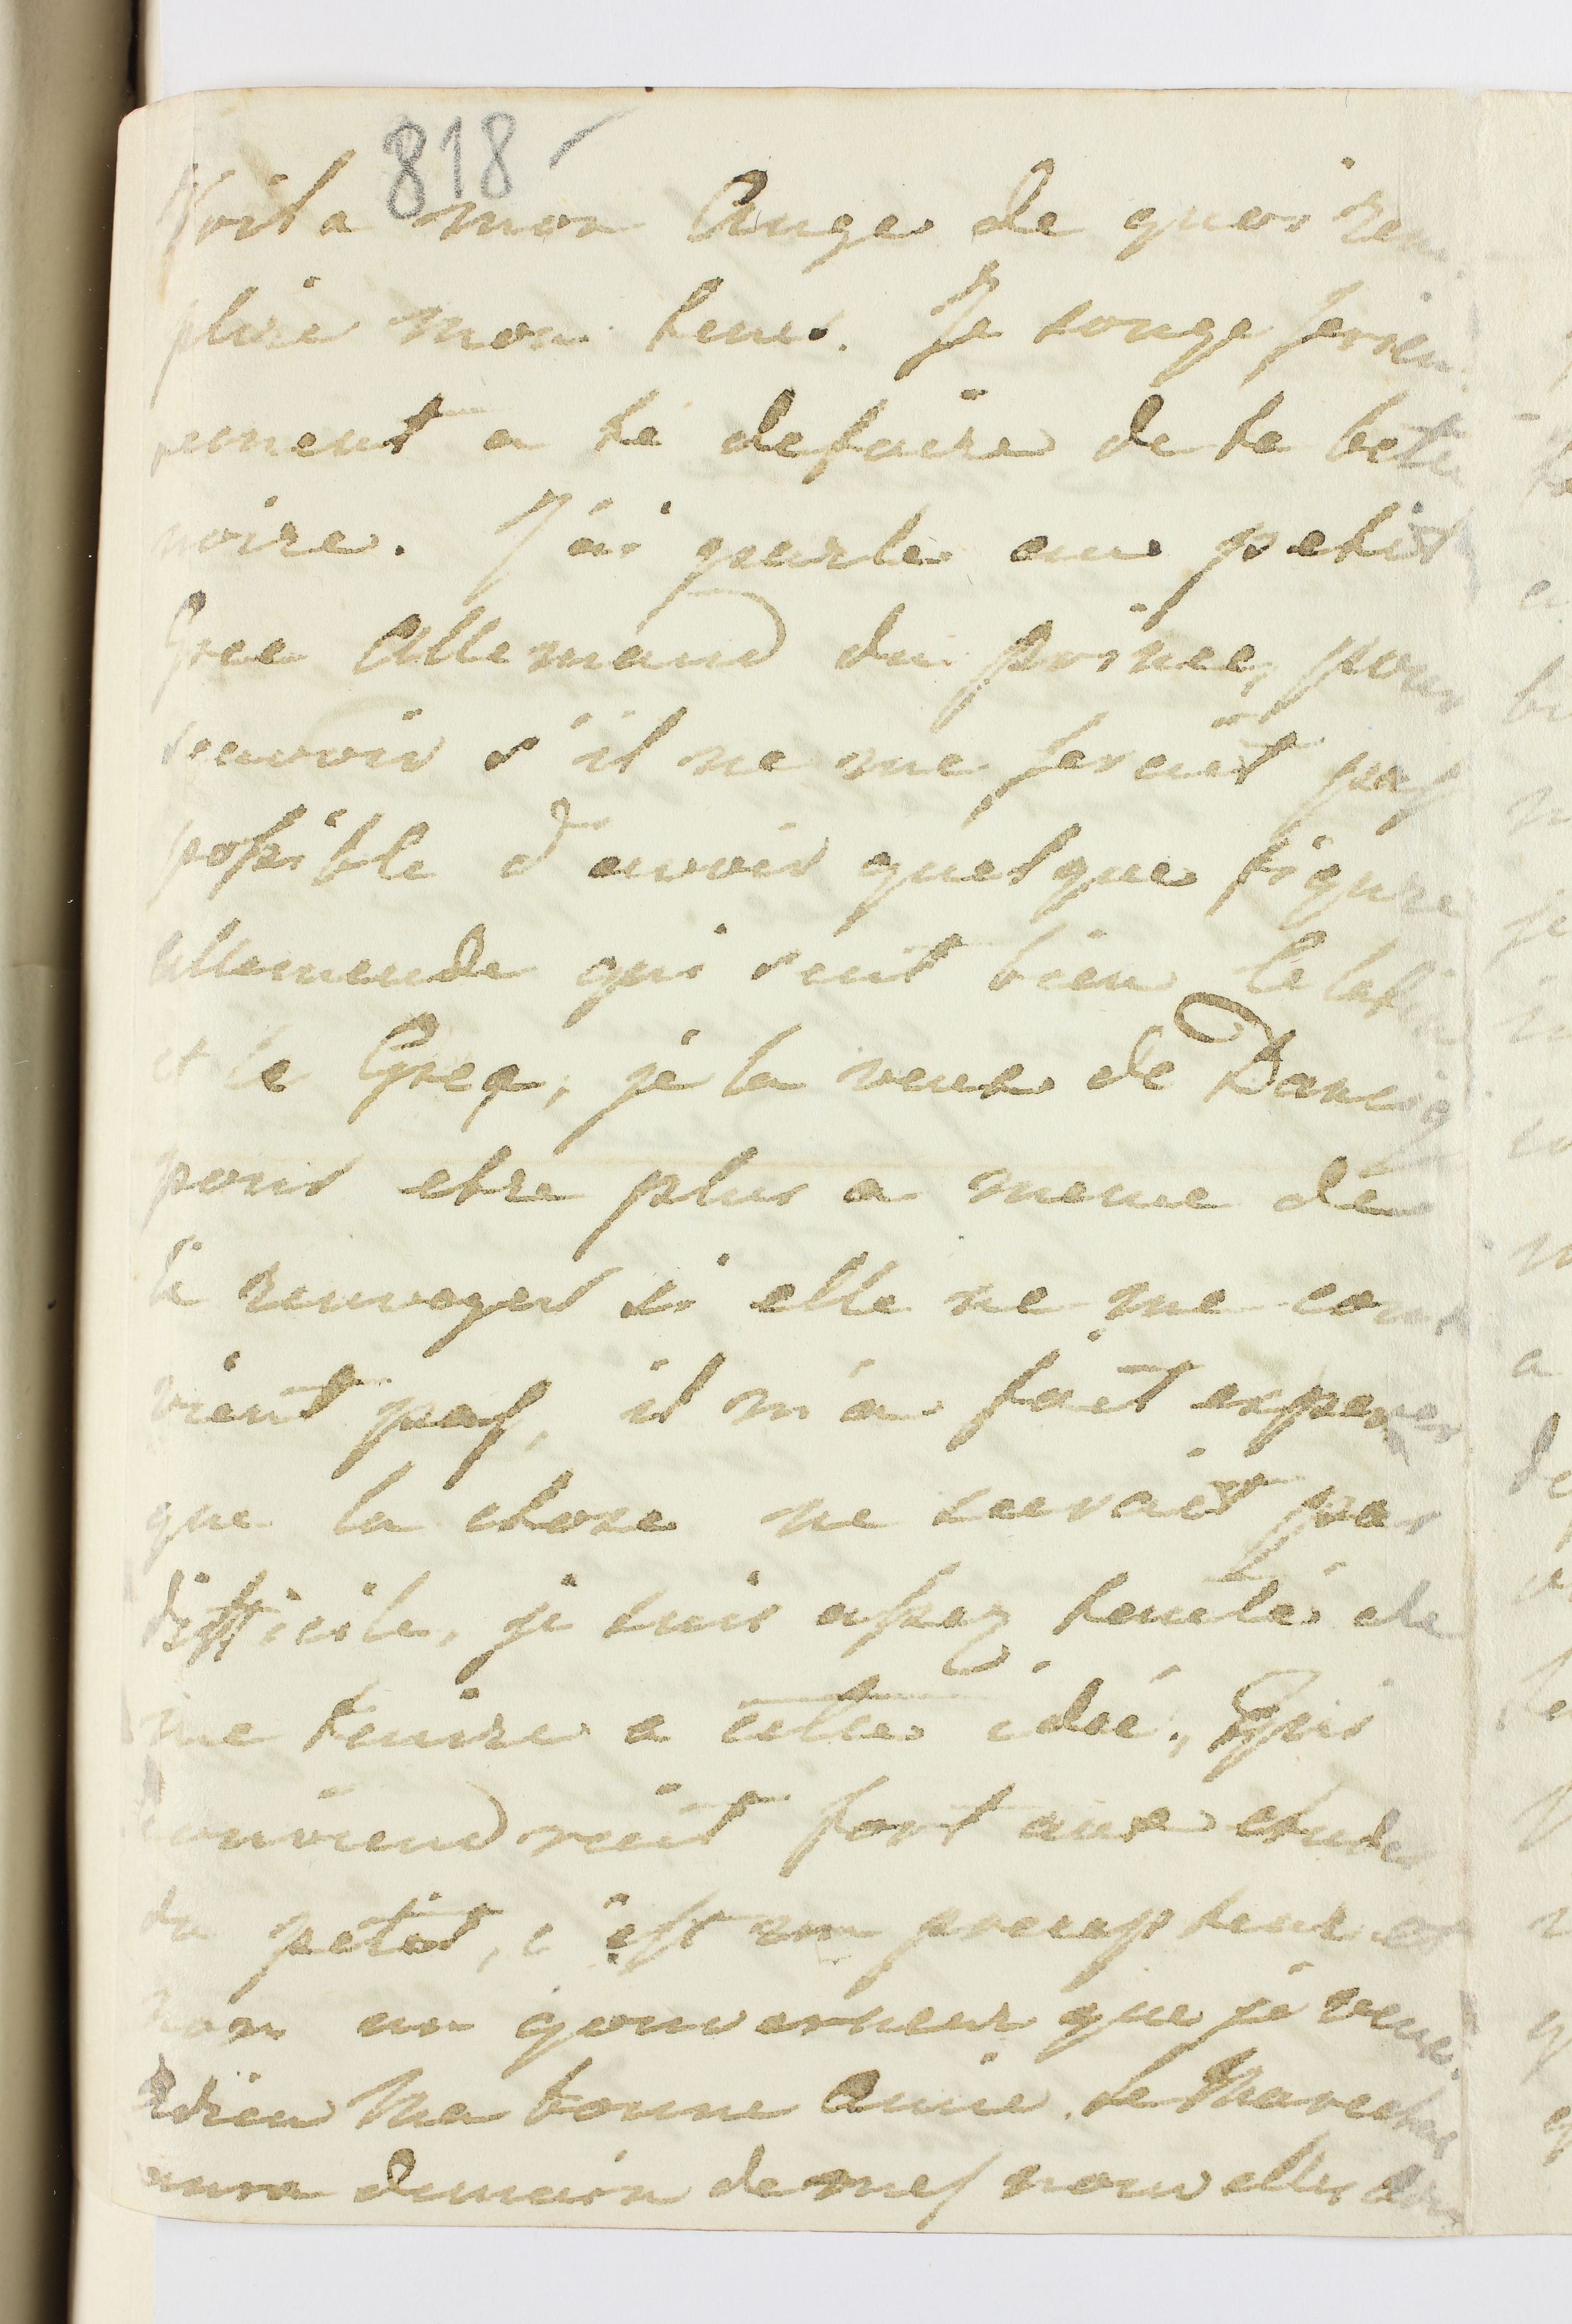 818 -
Voila mon Ange de quoi rem
plire mon tems. Je songe serieu
sement a te defaire de ta bete
noire. J'ai parle au petit
Grec Allemand du prince, pour
scavoir s'il ne me seroit pas
possible d'avoir quelque figure
allemende qui sait bien le latin
et le Greq, je la veux de Danzig
pour etre plus a meme de
le renvoyer si elle ne me con
vient pas, il m'a fait esperer
que la chose ne seerait pas
difficile, je suis assez tenté de
me tenire a cette ideé,
conviendrait fort aux etudes
du petit, c'est un precepteur et
non un gouverneur que je veux.
Adieu Ma bonne Amie. le Marechal
aura demain de mes nouvelles